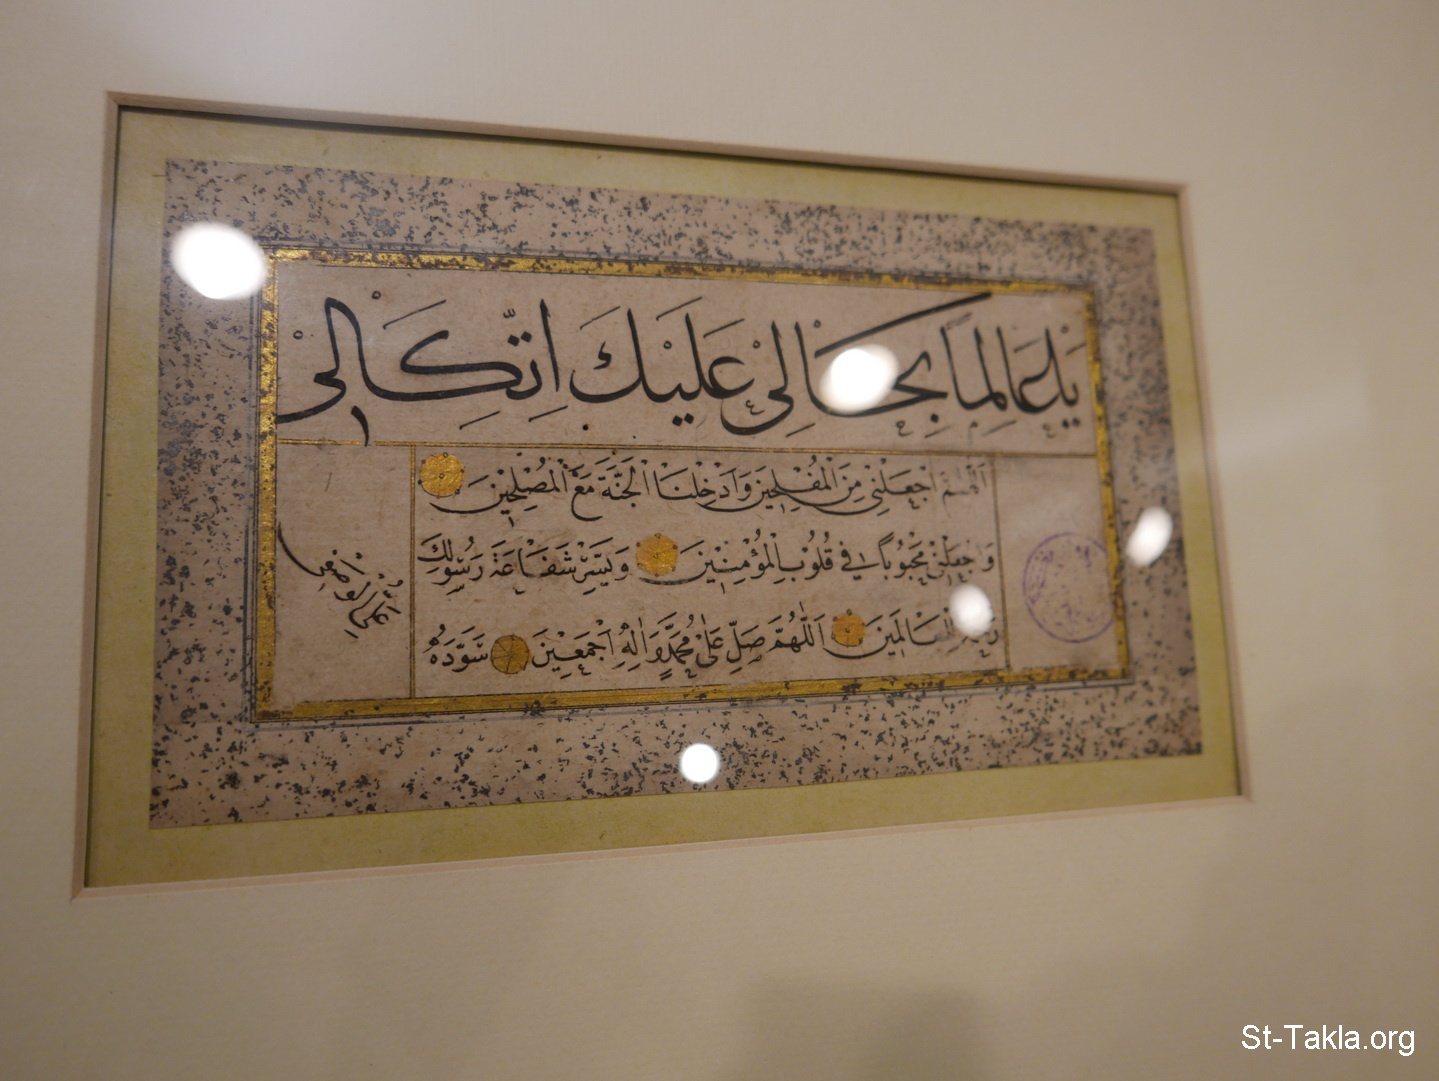 يا عالما بحالي عليك اتكالي
اللهم اجعلني من المفلحين وادخلنا الجنة مع المصلحين
واجعلني محبوبا في قلوب المؤمنين ويسر شفاعة رسولك
العالمين اللهم صل على محمد واله اجمعين سوده
St-Takla.org